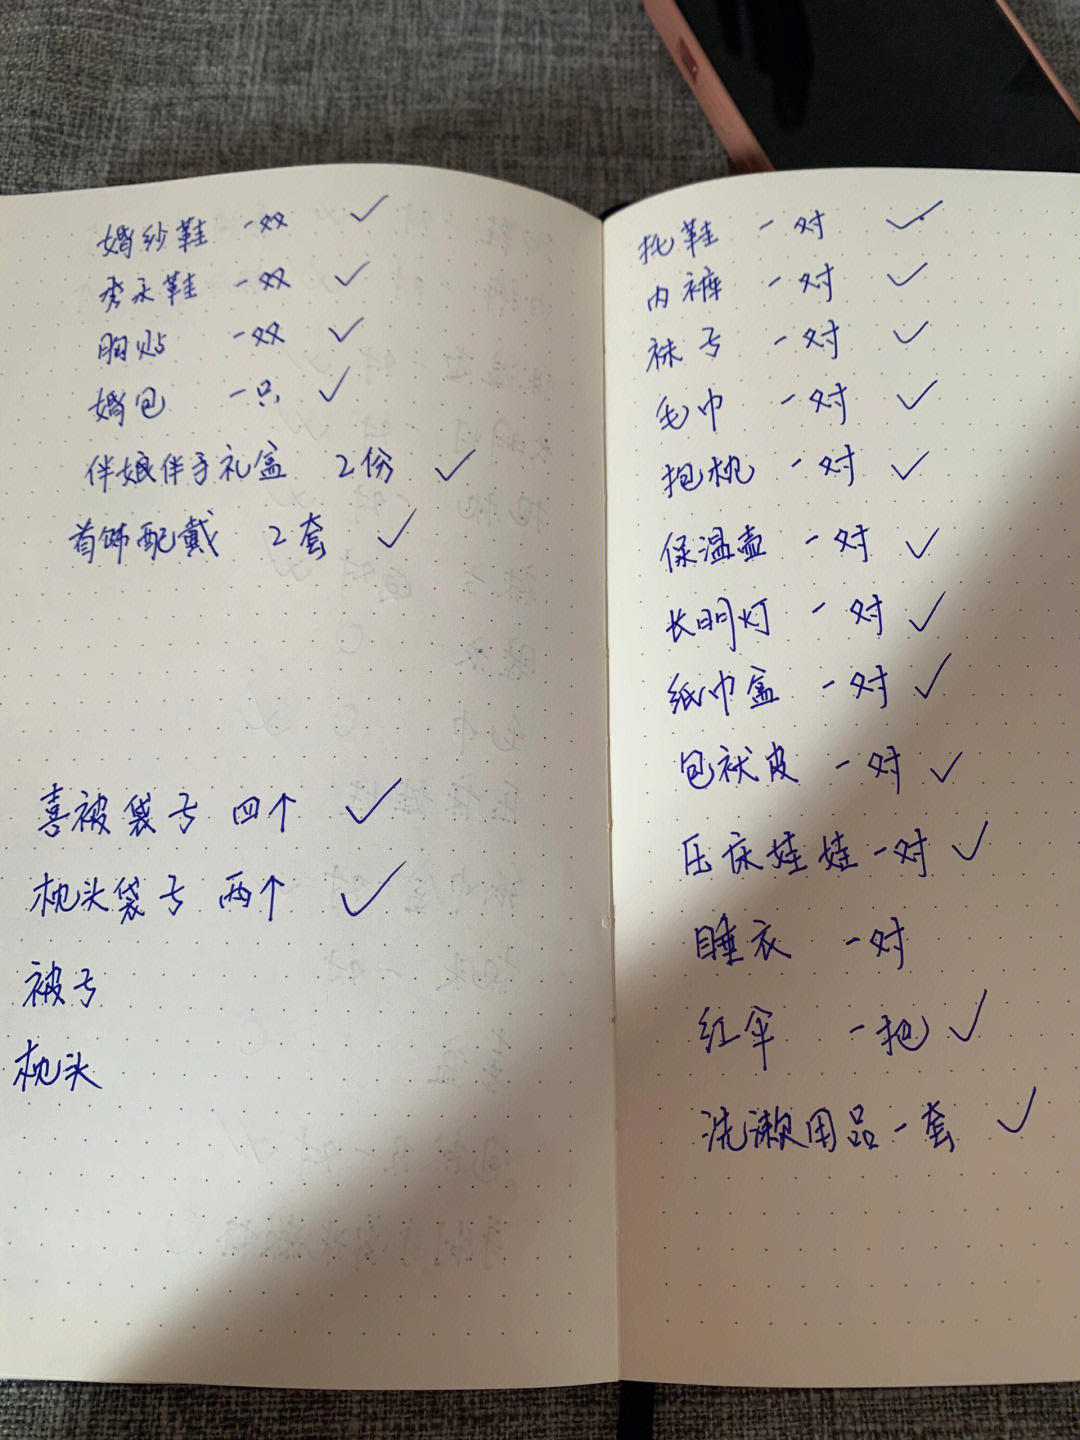 婚纱鞋 一双 ✓
秀禾鞋 一双 ✓
胸贴 一双 ✓
婚包 一只 ✓
伴娘伴手礼盒 2份 ✓
首饰配戴 2套 ✓
喜被袋子 四个 ✓
枕头袋子 两个 ✓
被子
枕头
托鞋 一对 ✓
内裤 一对 ✓
袜子 一对 ✓
毛巾 一对 ✓
抱枕 一对 ✓
保温壶 一对 ✓
长明灯 一对 ✓
纸巾盒 一对 ✓
包袱皮 一对 ✓
压床娃娃 一对 ✓
睡衣 一对
红伞 一把 ✓
洗漱用品 一套 ✓